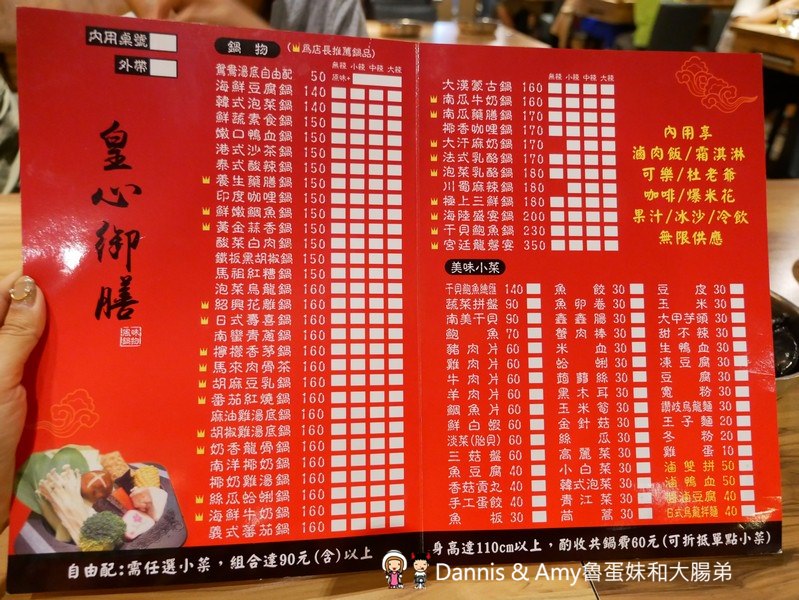 內用桌號
外帶
皇心御膳
風味鍋物
鍋物 (為店長推薦鍋品)
無辣 小辣 中辣 大辣
鴛鴦湯底自由配 50 原味+
海鮮豆腐鍋 140
韓式泡菜鍋 140
鮮蔬素食鍋 150
嫩口鴨血鍋 150
港式沙茶鍋 150
泰式酸辣鍋 150
養生藥膳鍋 150
印度咖哩鍋 150
鮮嫩鯛魚鍋 150
黃金蒜香鍋 150
酸菜白肉鍋 150
鐵板黑胡椒鍋 150
馬祖紅糟鍋 150
泡菜烏龍鍋 160
紹興花雕鍋 160
日式壽喜鍋 160
南蠻青蔥鍋 160
檸檬香茅鍋 160
馬來肉骨茶 160
胡麻豆乳鍋 160
番茄紅燒鍋 160
麻油雞湯底鍋 160
胡椒雞湯底鍋 160
奶香龍骨鍋 160
南洋椰奶鍋 160
椰奶雞湯鍋 160
絲瓜蛤蜊鍋 160
海鮮牛奶鍋 160
義式蕃茄鍋 160
無辣 小辣 中辣 大辣
大漢蒙古鍋 160
南瓜牛奶鍋 160
南瓜藥膳鍋 170
椰香咖哩鍋 170
大汗麻奶鍋 170
法式乳酪鍋 170
泡菜乳酪鍋 180
川蜀麻辣鍋 180
極上三鮮鍋 180
海陸盛宴鍋 200
干貝鮑魚鍋 230
宮廷龍蝦宴 350
內用享
滷肉飯/霜淇淋
可樂/杜老爺
咖啡/爆米花
果汁/冰沙/冷飲
無限供應
美味小菜
干貝鮑魚總匯 140
蔬菜拼盤 90
南美干貝 90
鮑魚 70
豬肉片 60
雞肉片 60
牛肉片 60
羊肉片 60
鯛魚片 60
鮮白蝦 60
淡菜(貽貝) 60
三菇盤 60
魚豆腐 40
香菇貢丸 40
手工蛋餃 40
魚板 30
魚餃 30
魚卵卷 30
鑫鑫腸 30
蟹肉棒 30
米血 30
蛤蜊 30
蒟蒻絲 30
黑木耳 30
玉米筍 30
金針菇 30
絲瓜 30
高麗菜 30
小白菜 30
韓式泡菜 30
貴江菜 30
茼蒿 30
豆皮 30
玉米 30
大甲芋頭 30
甜不辣 30
生鴨血 30
凍豆腐 30
豆腐 30
寬粉 30
讚岐烏龍麵 30
王子麵 20
冬粉 20
雞蛋 10
滷雙拼 50
滷鴨血 50
麻滷豆腐 40
日式烏龍拌麵 40
自由配:需任選小菜，組合達90元(含)以上
身高達110cm以上，酌收共鍋費60元(可折抵單點小菜)
Dannis & Amy魯蛋妹和大腸弟